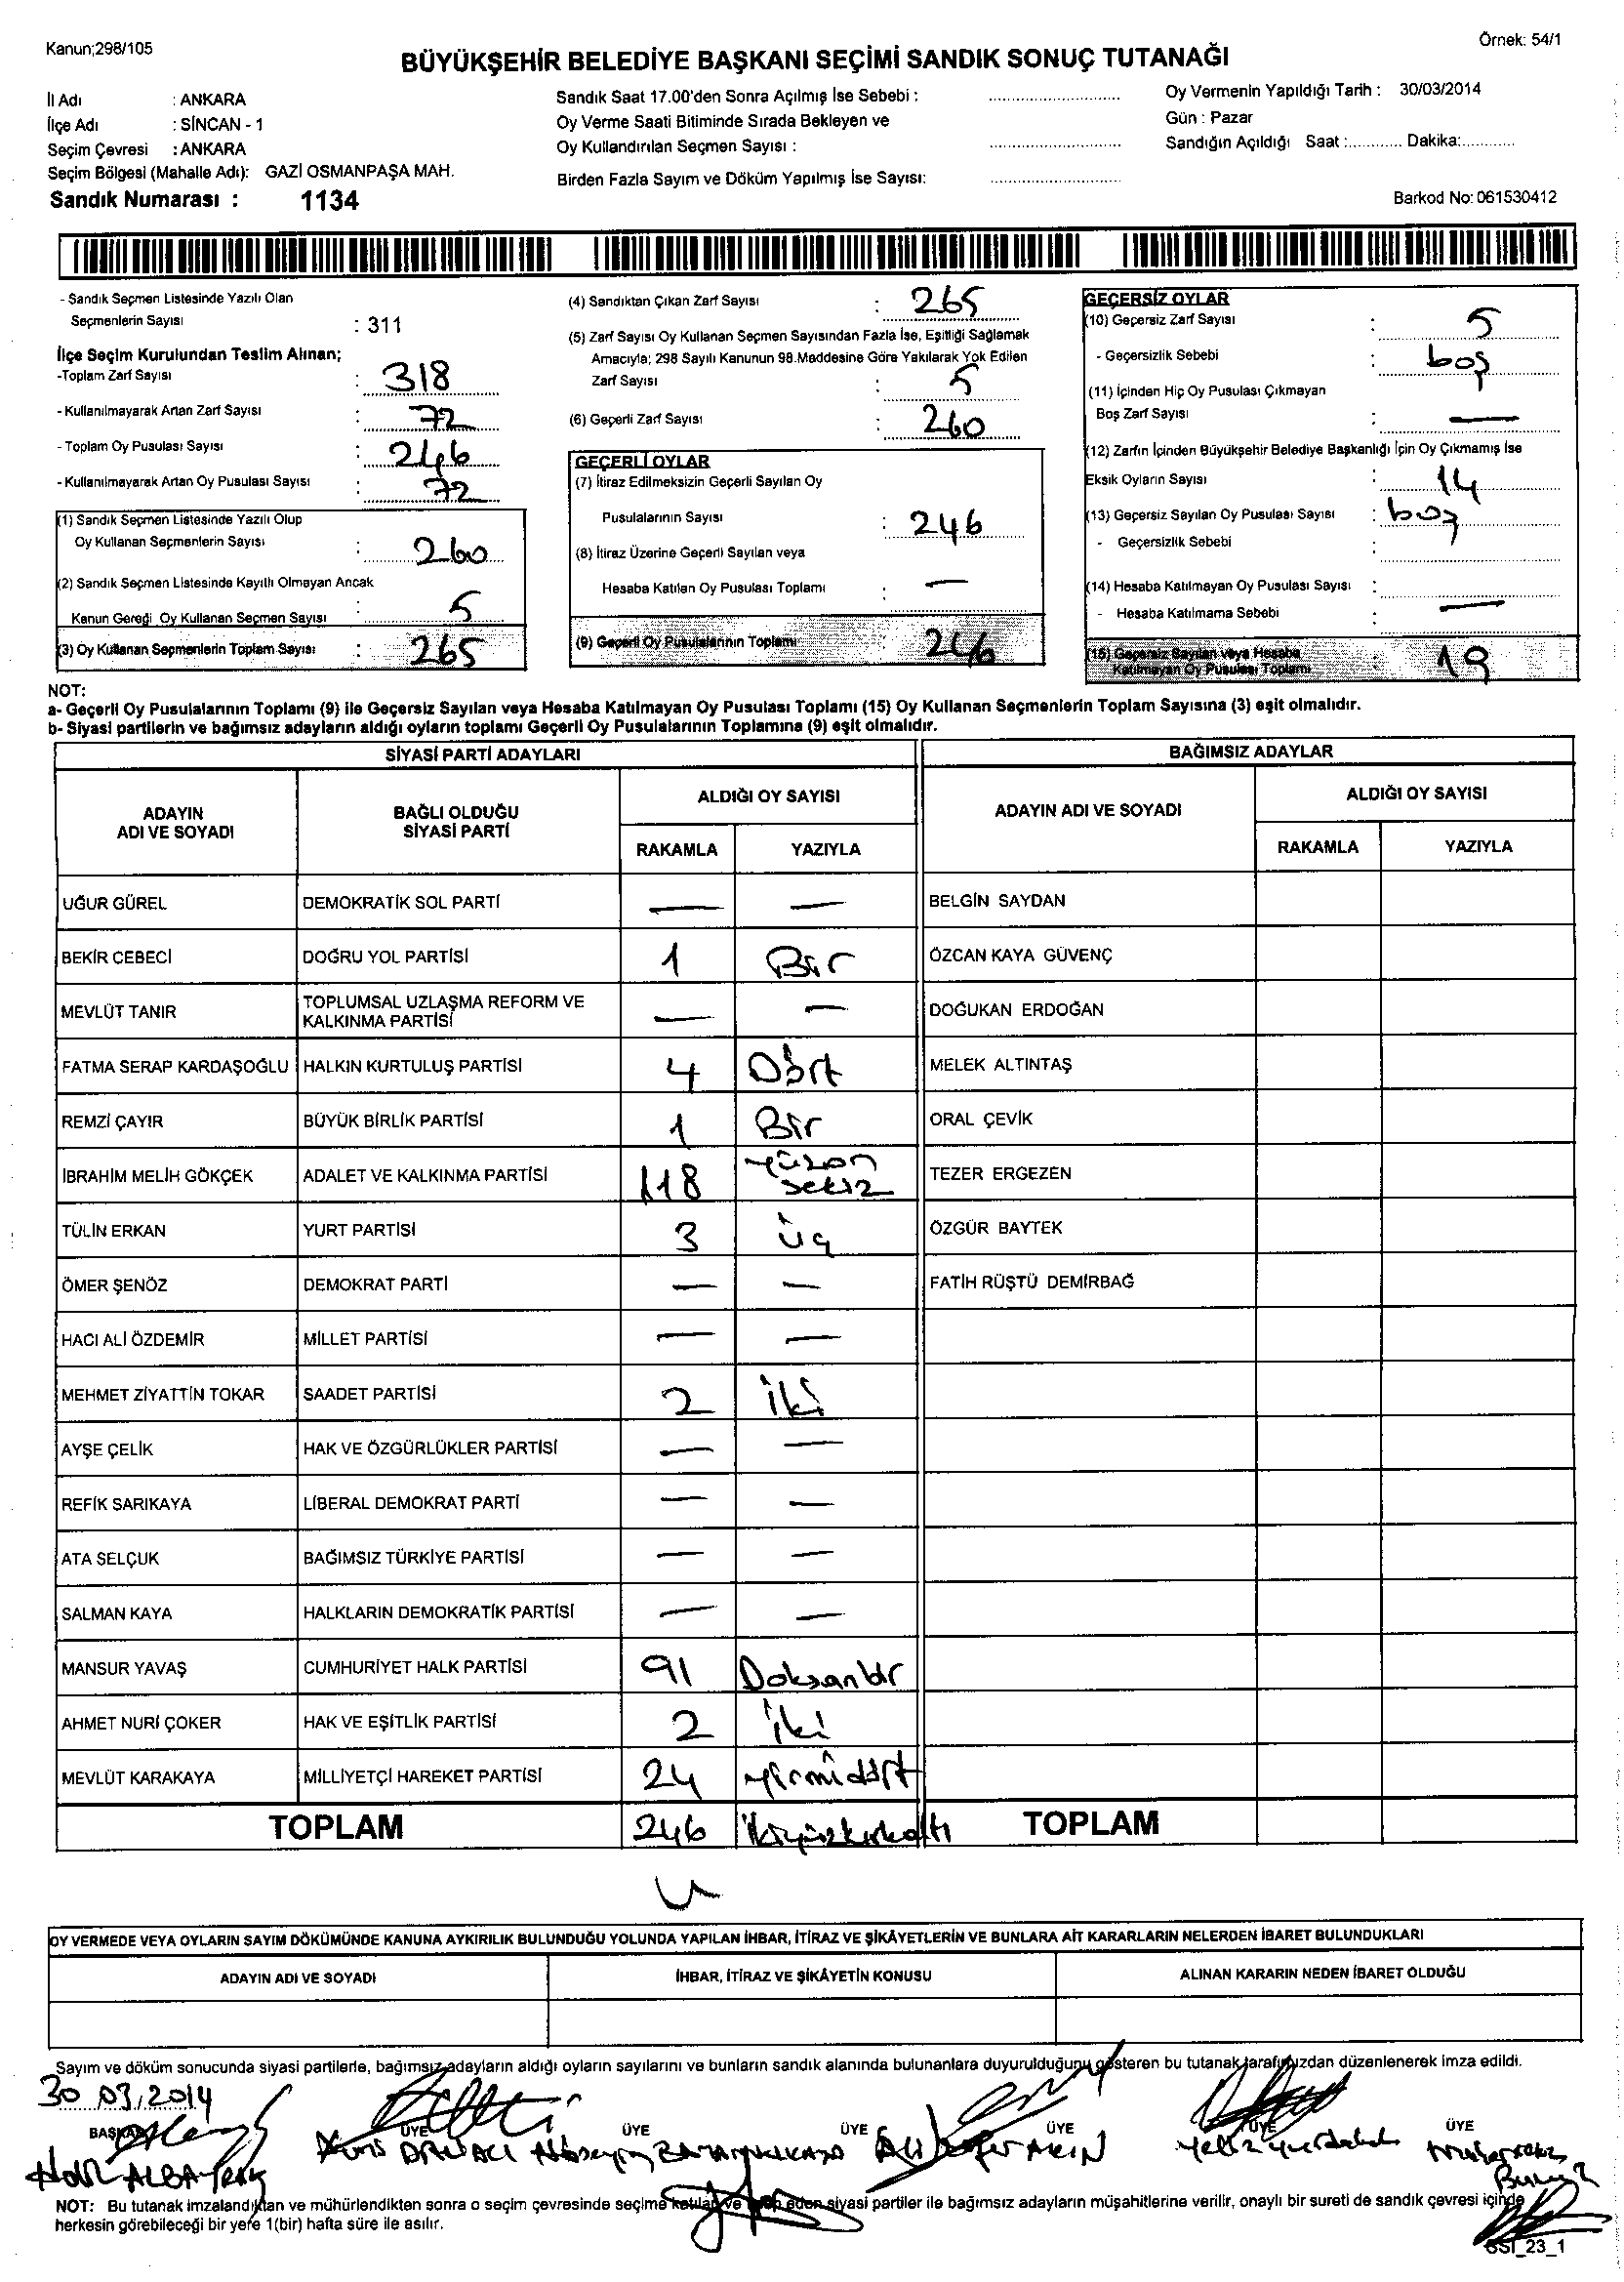 Kanun;298/105
Örnek: 54/1
BÜYÜKŞEHİR BELEDİYE BAŞKANI SEÇİMİ SANDIK SONUÇ TUTANAĞI
İl Adı : ANKARA
İlçe Adı : SİNCAN - 1
Seçim Çevresi : ANKARA
Seçim Bölgesi (Mahalle Adı): GAZİ OSMANPAŞA MAH.
Sandık Numarası : 1134
Sandık Saat 17.00'den Sonra Açılmış İse Sebebi :
Oy Verme Saati Bitiminde Sırada Bekleyen ve
Oy Kullandırılan Seçmen Sayısı :
Birden Fazla Sayım ve Döküm Yapılmış İse Sayısı:
Oy Vermenin Yapıldığı Tarih : 30/03/2014
Gün : Pazar
Sandığın Açıldığı Saat :........... Dakika:...........
Barkod No: 061530412
- Sandık Seçmen Listesinde Yazılı Olan
Seçmenlerin Sayısı : 311
İlçe Seçim Kurulundan Teslim Alınan;
-Toplam Zarf Sayısı : 318
- Kullanılmayarak Artan Zarf Sayısı : 72
- Toplam Oy Pusulası Sayısı : 246
- Kullanılmayarak Artan Oy Pusulası Sayısı : 72
(1) Sandık Seçmen Listesinde Yazılı Olup
Oy Kullanan Seçmenlerin Sayısı : 260
(2) Sandık Seçmen Listesinde Kayıtlı Olmayan Ancak
Kanun Gereği Oy Kullanan Seçmen Sayısı : 5
(3) Oy Kullanan Seçmenlerin Toplam Sayısı : 265
(4) Sandıktan Çıkan Zarf Sayısı : 265
(5) Zarf Sayısı Oy Kullanan Seçmen Sayısından Fazla İse, Eşitliği Sağlamak
Amacıyla; 298 Sayılı Kanunun 98.Maddesine Göre Yakılarak Yok Edilen
Zarf Sayısı : 5
(6) Geçerli Zarf Sayısı : 260
GEÇERLİ OYLAR
(7) İtiraz Edilmeksizin Geçerli Sayılan Oy
Pusulalarının Sayısı : 246
(8) İtiraz Üzerine Geçerli Sayılan veya
Hesaba Katılan Oy Pusulası Toplamı : —
(9) Geçerli Oy Pusulalarının Toplamı 246
GEÇERSİZ OYLAR
(10) Geçersiz Zarf Sayısı : 5
- Geçersizlik Sebebi : boş
(11) İçinden Hiç Oy Pusulası Çıkmayan
Boş Zarf Sayısı : —
(12) Zarfın İçinden Büyükşehir Belediye Başkanlığı İçin Oy Çıkmamış İse
Eksik Oyların Sayısı : 14
(13) Geçersiz Sayılan Oy Pusulası Sayısı : boş
- Geçersizlik Sebebi :
(14) Hesaba Katılmayan Oy Pusulası Sayısı :
- Hesaba Katılmama Sebebi : —
(15) Geçersiz Sayılan veya Hesaba
Katılmayan Oy Pusulası Toplamı 19
NOT:
a- Geçerli Oy Pusulalarının Toplamı (9) ile Geçersiz Sayılan veya Hesaba Katılmayan Oy Pusulası Toplamı (15) Oy Kullanan Seçmenlerin Toplam Sayısına (3) eşit olmalıdır.
b- Siyasi partilerin ve bağımsız adayların aldığı oyların toplamı Geçerli Oy Pusulalarının Toplamına (9) eşit olmalıdır.
SİYASİ PARTİ ADAYLARI
BAĞIMSIZ ADAYLAR
ADAYIN ADI VE SOYADI
BAĞLI OLDUĞU SİYASİ PARTİ
ALDIĞI OY SAYISI
RAKAMLA YAZIYLA
ADAYIN ADI VE SOYADI
ALDIĞI OY SAYISI
RAKAMLA YAZIYLA
UĞUR GÜREL DEMOKRATİK SOL PARTİ — — BELGİN SAYDAN
BEKİR CEBECİ DOĞRU YOL PARTİSİ 1 Bir ÖZCAN KAYA GÜVENÇ
MEVLÜT TANIR TOPLUMSAL UZLAŞMA REFORM VE KALKINMA PARTİSİ — — DOĞUKAN ERDOĞAN
FATMA SERAP KARDAŞOĞLU HALKIN KURTULUŞ PARTİSİ 4 Dört MELEK ALTINTAŞ
REMZİ ÇAYIR BÜYÜK BİRLİK PARTİSİ 1 Bir ORAL ÇEVİK
İBRAHİM MELİH GÖKÇEK ADALET VE KALKINMA PARTİSİ 118 Yüzon sekiz TEZER ERGEZEN
TÜLİN ERKAN YURT PARTİSİ 3 üç ÖZGÜR BAYTEK
ÖMER ŞENÖZ DEMOKRAT PARTİ — — FATİH RÜŞTÜ DEMİRBAĞ
HACI ALİ ÖZDEMİR MİLLET PARTİSİ — —
MEHMET ZİYATTİN TOKAR SAADET PARTİSİ 2 iki
AYŞE ÇELİK HAK VE ÖZGÜRLÜKLER PARTİSİ — —
REFİK SARIKAYA LİBERAL DEMOKRAT PARTİ — —
ATA SELÇUK BAĞIMSIZ TÜRKİYE PARTİSİ — —
SALMAN KAYA HALKLARIN DEMOKRATİK PARTİSİ — —
MANSUR YAVAŞ CUMHURİYET HALK PARTİSİ 91 Doksanbir
AHMET NURİ ÇOKER HAK VE EŞİTLİK PARTİSİ 2 iki
MEVLÜT KARAKAYA MİLLİYETÇİ HAREKET PARTİSİ 24 yirmidört
TOPLAM 246 ikiyüzkırkaltı TOPLAM
OY VERMEDE VEYA OYLARIN SAYIM DÖKÜMÜNDE KANUNA AYKIRILIK BULUNDUĞU YOLUNDA YAPILAN İHBAR, İTİRAZ VE ŞİKÂYETLERİN VE BUNLARA AİT KARARLARIN NELERDEN İBARET BULUNDUKLARI
ADAYIN ADI VE SOYADI
İHBAR, İTİRAZ VE ŞİKÂYETİN KONUSU
ALINAN KARARIN NEDEN İBARET OLDUĞU
Sayım ve döküm sonucunda siyasi partilerle, bağımsız adayların aldığı oyların sayılarını ve bunların sandık alanında bulunanlara duyurulduğunu gösteren bu tutanak tarafımızdan düzenlenerek imza edildi.
30.03.2014
BAŞKAN ÜYE ÜYE ÜYE ÜYE ÜYE ÜYE
Halil ALBAYRAK
NOT: Bu tutanak imzalandıktan ve mühürlendikten sonra o seçim çevresinde seçime katılan ve eden siyasi partiler ile bağımsız adayların müşahitlerine verilir, onaylı bir sureti de sandık çevresi içinde
herkesin görebileceği bir yere 1(bir) hafta süre ile asılır.
SSI_23_1